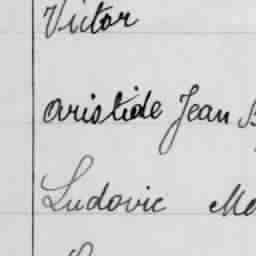 Victor
Aristide Jean
Ludovic